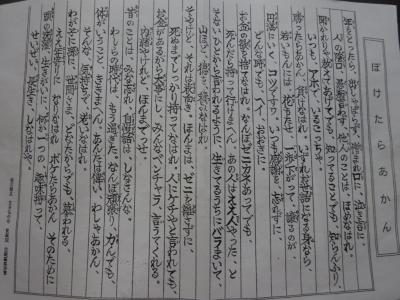 ぼけたらあかん
年をとったら 出しゃばらず 憎まれ口に 泣き言に
人のかげ口 愚痴言わず、他人のことは ほめなはれ
聞かれりゃ教えてあげてても、知ってることでも 知らんふり
いつも アホで いるこっちゃ。
勝ったらあかん 負けなはれ いずれお世話になる身なら
若いもんには 花もたせ 一歩さがって ゆずるのが
円満にいく コツですわ。いつも感謝を 忘れずに
どんな時でも へイ おおきに
お金の欲を 捨てなはれ なんぼゼニカネあってても
死んだら持って行けまへん あの人は ええ人やった と
そないひとから言われるように 生きてるうちに バラまいて
山ほど 徳を 積みなはれ
そやけど、それは表むき。ほんまは、ゼニを離さずに
死ぬまでしっかり持ってなはれ 人にケチやと言われても
お金があるから大事にし みんなベンチャラ 言うてくれる。
内証やけれど ほんまでっせ。
昔のことは みな忘れ 自慢話は しなさんな
わしらの時代は もう過ぎた なんぼ頑張り 力んでも
体がいうこと ききまへん あんたは偉い わしゃあかん
そんな 気持ちで おりなはれ
わが子に孫に 世間さま どなたからでも 慕われる
ええ年寄りに なりなはれ ボケたらあかん そのために
頭の洗濯 生きがいに 何か一つの 趣味持って
せいぜい 長生き しなはれや